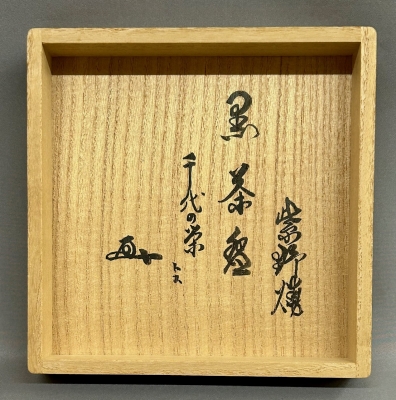 紫野焼
黒茶盌
千代の栄
トス